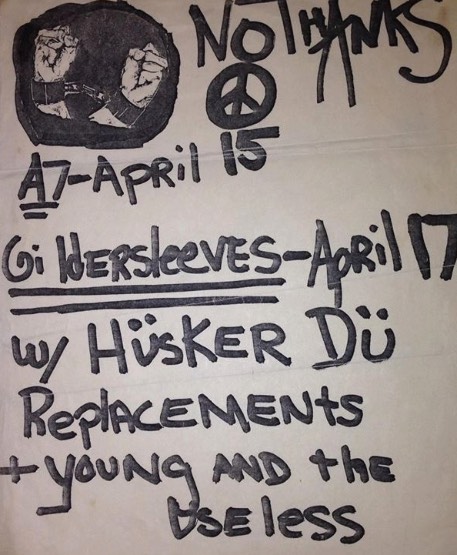 No THANKS
A7-April 15
GildersleeVES-April 17
w/ HüsKER Dü
RepLACEMENts
+ youNg AND the
UsE less